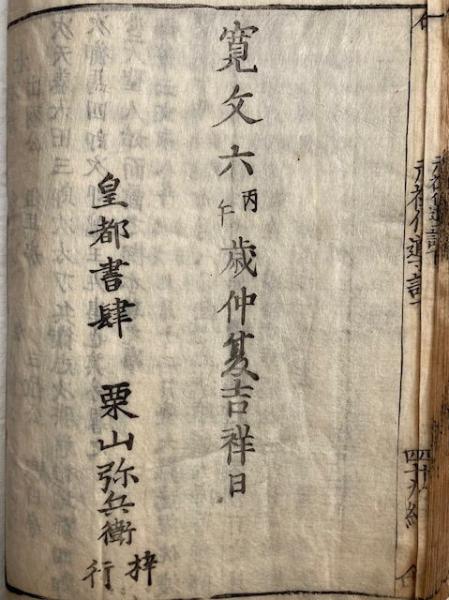 寛文六丙午歳仲夏吉祥日
皇都書肆 栗山弥兵衛梓行
元祖化導記